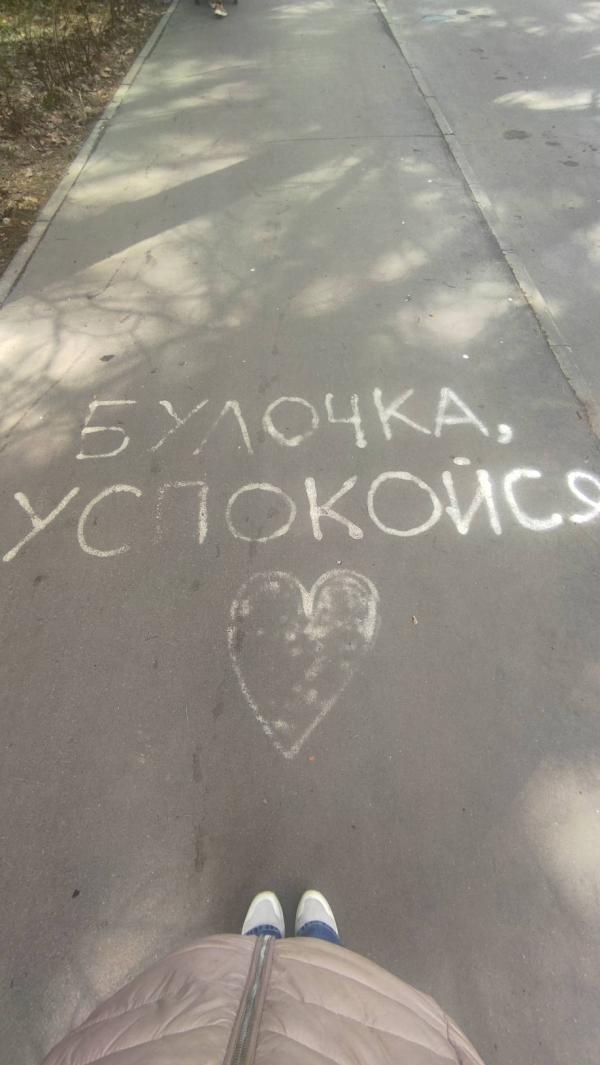 БУЛОЧКА,
УСПОКОЙСЯ